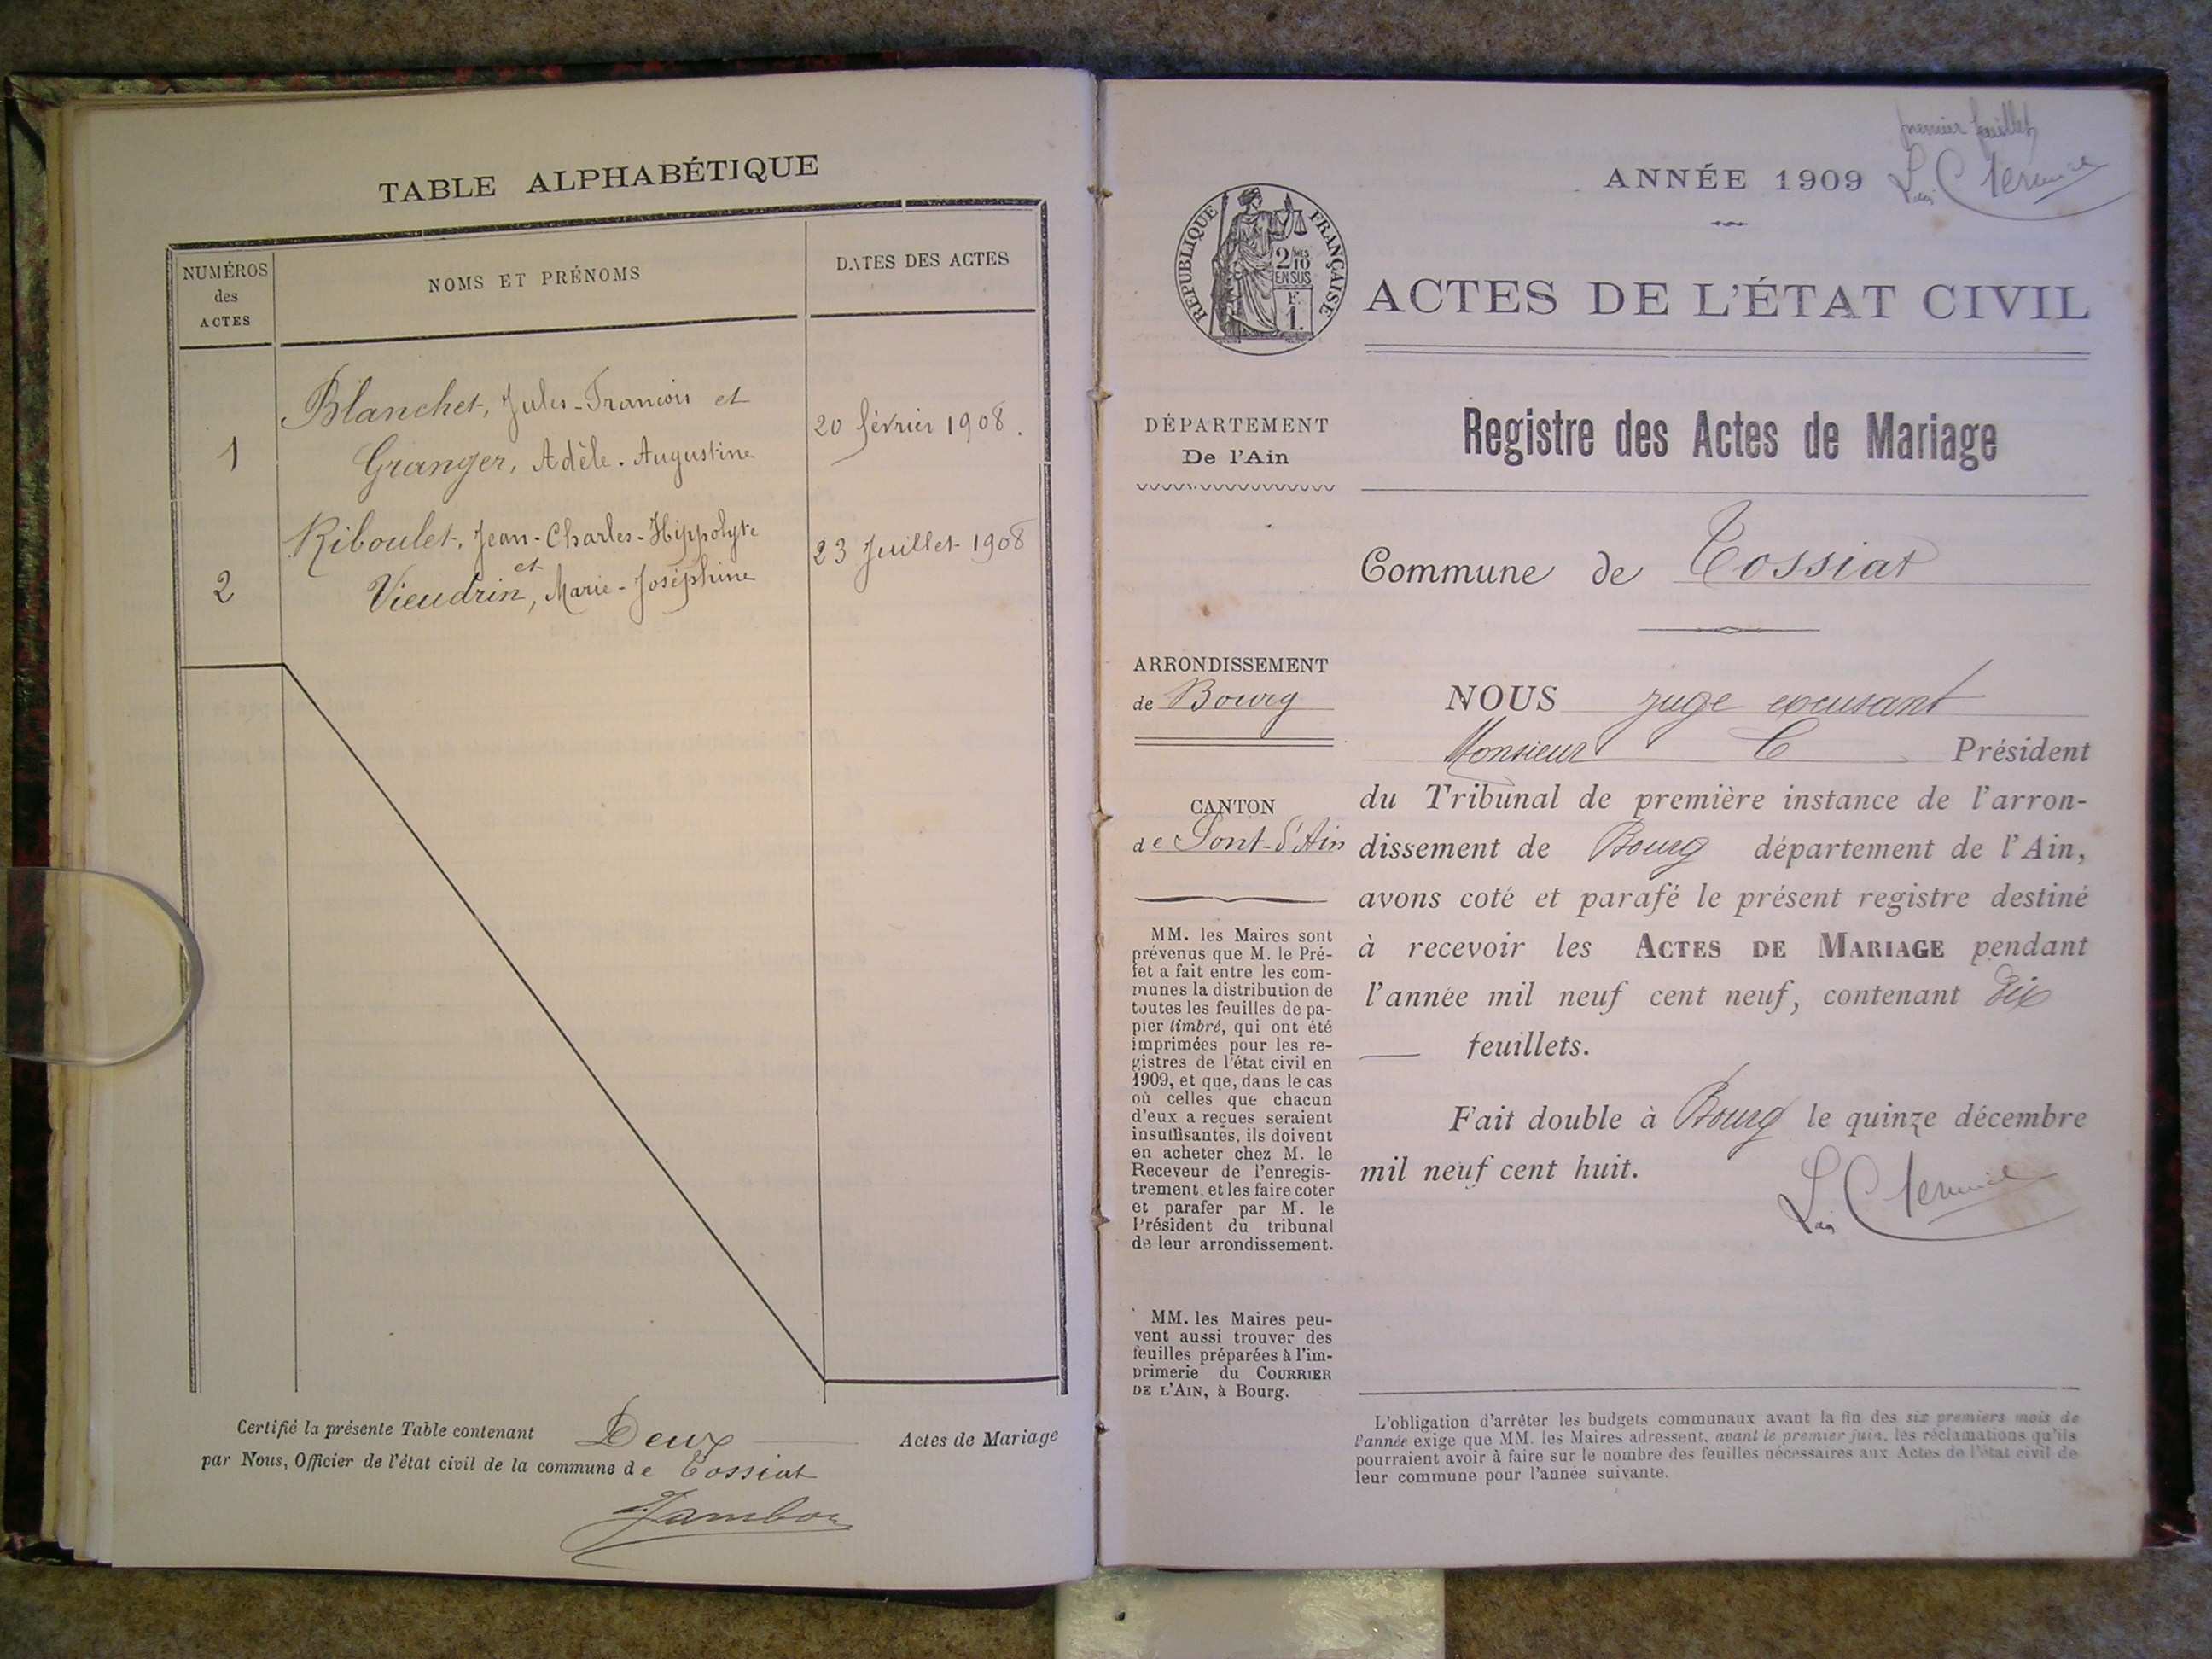 TABLE ALPHABÉTIQUE
NUMÉROS
des
ACTES
NOMS ET PRÉNOMS
DATES DES ACTES
1
Blanchet, Jules-François et
Granger, Adèle-Augustine
20 février 1908.
2
Riboulet, Jean-Charles-Hippolyte
et
Vieudrin, Marie-Joséphine
23 Juillet 1908
Certifié la présente Table contenant Deux Actes de Mariage
par Nous, Officier de l'état civil de la commune de Tossiat
Jambon
premier feuillet
ANNÉE 1909
RÉPUBLIQUE FRANÇAISE
2 MES
10
EN SUS
F.
1.
ACTES DE L'ÉTAT CIVIL
DÉPARTEMENT
De l'Ain
Registre des Actes de Mariage
Commune de Tossiat
ARRONDISSEMENT
de Bourg
CANTON
de Pont-d'Ain
MM. les Maires sont
prévenus que M. le Pré-
fet a fait entre les com-
munes la distribution de
toutes les feuilles de pa-
pier timbré, qui ont été
imprimées pour les re-
gistres de l'état civil en
1909, et que, dans le cas
où celles que chacun
d'eux a reçues seraient
insuffisantes, ils doivent
en acheter chez M. le
Receveur de l'enregis-
trement, et les faire coter
et parafer par M. le
Président du tribunal
de leur arrondissement.
MM. les Maires peu-
vent aussi trouver des
feuilles préparées à l'im-
primerie du COURRIER
DE L'AIN, à Bourg.
NOUS juge excusant
Monsieur Président
du Tribunal de première instance de l'arron-
dissement de Bourg département de l'Ain,
avons coté et parafé le présent registre destiné
à recevoir les ACTES DE MARIAGE pendant
l'année mil neuf cent neuf, contenant dix
feuillets.
Fait double à Bourg le quinze décembre
mil neuf cent huit.
L'obligation d'arrêter les budgets communaux avant la fin des six premiers mois de
l'année exige que MM. les Maires adressent, avant le premier juin, les réclamations qu'ils
pourraient avoir à faire sur le nombre des feuilles nécessaires aux Actes de l'état civil de
leur commune pour l'année suivante.